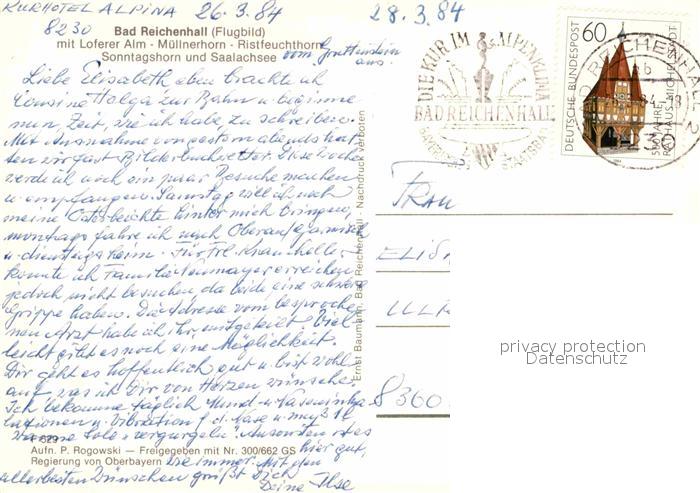 KURHOTEL ALPINA 26.3.84
28.3.84
8230
Bad Reichenhall (Flugbild)
mit Loferer Alm - Müllnerhorn - Ristfeuchthorn
Sonntagshorn und Saalachsee
aus:
Liebe Elisabeth eben brachte ich
Cousine Helga zur Bahn u. beginne
nun Zeit, die ich habe zu schreiben.
Mit Ausnahme von gestern abend hat
Bilderbuchwetter. Diese Woche
werde ich noch ein paar Besuche machen
u. empfangen. Samstag will ich noch
meine Osterbeichte hinter mich bringen,
montags fahre ich nach
u. dienstags heim. Für Frl.
konnte ich Familie erreichen
jedoch nicht besuchen da beide eine schwere
Grippe haben. Die Adresse vom besproche-
nen Arzt habe ich ihr mitgeteilt. Viel-
leicht gibt es noch eine Möglichkeit.
Dir geht es hoffentlich gut u. bist wohl
auf was ich Dir von Herzen wünsche.
Ich bekomme täglich Mund- u. Naseninha-
lationen u. Vibration f. d. Nase u. muß
Sole vergurgeln. Ansonsten ist es
hier gut,
wie immer. Mit den
allerbesten Wünschen grüßt Dich
Deine Ilse
F 629
Aufn. P. Rogowski — Freigegeben mit Nr. 300/662 GS
Regierung von Oberbayern
Ernst Baumann, Bad Reichenhall - Nachdruck verboten
DIE KUR IM ALPENKLIMA
BAD REICHENHALL
BAYER. STAATSBAD
DEUTSCHE BUNDESPOST
60
500 JAHRE
RATHAUS MICHELSTADT
BAD REICHENHALL 2
FRAU
ELIS
ULR
8360
privacy protection
Datenschutz